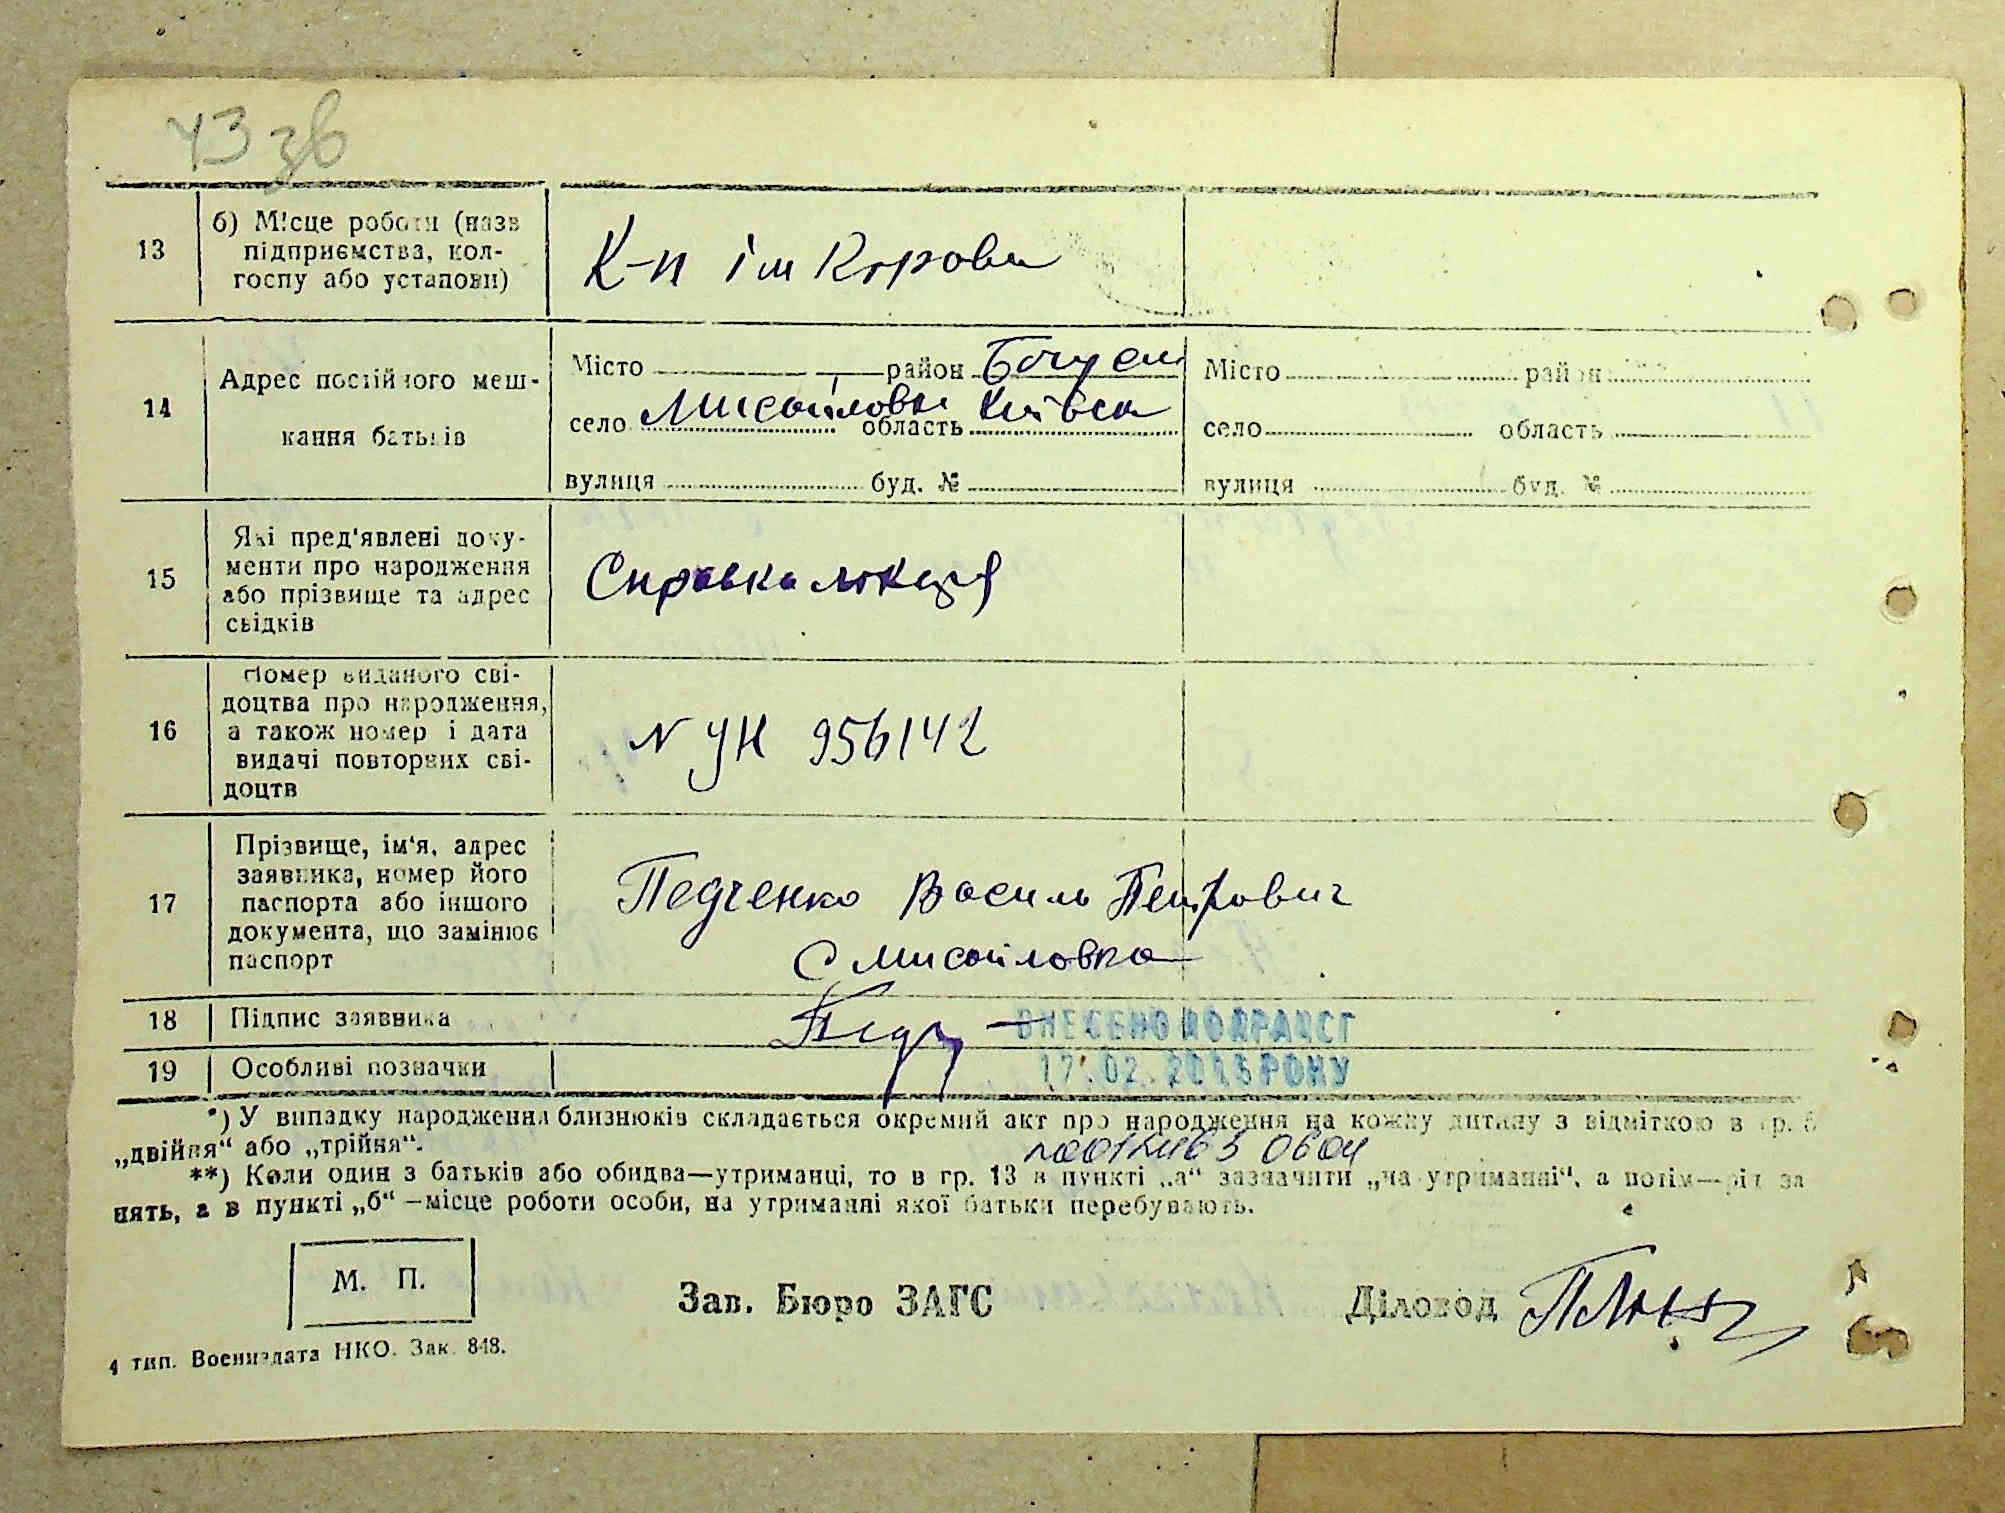 43 зв
13
б) Місце роботи (назв
підприємства, кол-
госпу або установи)
К-п ім Кірова
14
Адрес постійного меш-
кання батьків
Місто район Богусл
село Мисайловка область Київск
вулиця буд. №
Місто район
село область
вулиця буд. №
15
Які пред'явлені доку-
менти про народження
або прізвище та адрес
свідків
Справка
16
Номер виданого сві-
доцтва про народження,
а також номер і дата
видачі повторних сві-
доцтв
N УН 956142
17
Прізвище, ім'я, адрес
заявника, номер його
паспорта або іншого
документа, що замінює
паспорт
Педченко Василь Петрович
С Мисайловка
18
Підпис заявника
Пед
ВНЕСЕНО ДО ДРАЦСГ
19
Особливі позначки
17.02.2016 РОКУ
*) У випадку народження близнюків складається окремий акт про народження на кожну дитину з відміткою в гр. 5
„двійня“ або „трійня“.
**) Коли один з батьків або обидва—утриманці, то в гр. 13 в пункті „а“ зазначити „на утриманні“, а потім—рід за
нять, а в пункті „б“ —місце роботи особи, на утриманні якої батьки перебувають.
М. П.
Зав. Бюро ЗАГС
Діловод
4 тип. Воениздата НКО. Зак. 848.